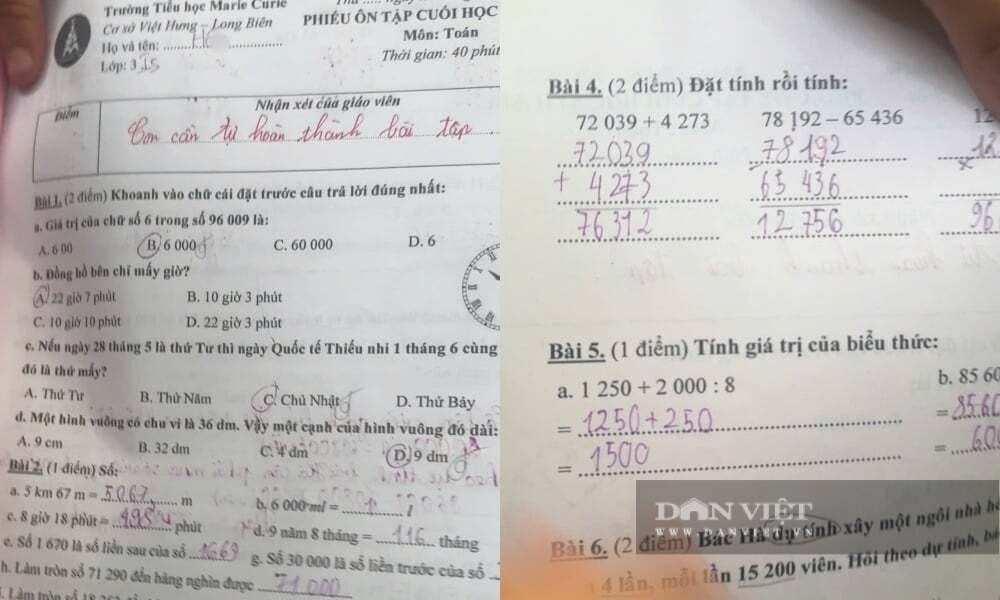 Trường Tiểu học Marie Curie
Cơ sở Việt Hưng – Long Biên
Họ và tên:
Lớp: 3
PHIẾU ÔN TẬP CUỐI HỌC
Môn: Toán
Thời gian: 40 phút
Điểm
Nhận xét của giáo viên
Con cần tự hoàn thành bài tập.
Bài 1. (2 điểm) Khoanh vào chữ cái đặt trước câu trả lời đúng nhất:
a. Giá trị của chữ số 6 trong số 96 009 là:
A. 6 00 B. 6 000 C. 60 000 D. 6
b. Đồng hồ bên chỉ mấy giờ?
A. 22 giờ 7 phút B. 10 giờ 3 phút
C. 10 giờ 10 phút D. 22 giờ 3 phút
c. Nếu ngày 28 tháng 5 là thứ Tư thì ngày Quốc tế Thiếu nhi 1 tháng 6 cùng
đó là thứ mấy?
A. Thứ Tư B. Thứ Năm C. Chủ Nhật D. Thứ Bảy
d. Một hình vuông có chu vi là 36 dm. Vậy một cạnh của hình vuông đó dài:
A. 9 cm B. 32 dm C. 4 dm D. 9 dm
Bài 2. (1 điểm) Số:
a. 5 km 67 m = 5067 m b. 6 000 ml = l
c. 8 giờ 18 phút = phút d. 9 năm 8 tháng = 116 tháng
e. Số 1 670 là số liền sau của số 1669 g. Số 30 000 là số liền trước của số
h. Làm tròn số 71 290 đến hàng nghìn được 71 000
Làm tròn số
Bài 4. (2 điểm) Đặt tính rồi tính:
72 039 + 4 273 78 192 – 65 436 12
72039 78192 12
+ 4273 65 436 x
76312 12 756 96
Bài 5. (1 điểm) Tính giá trị của biểu thức:
a. 1 250 + 2 000 : 8 b. 85 60
= 1250 + 250 = 8560
= 1500 = 600
DÂN VIỆT
WWW.DANVIET.VN
Bài 6. (2 điểm) Bác Hà dự tính xây một ngôi nhà
4 lần, mỗi lần 15 200 viên. Hỏi theo dự tính,